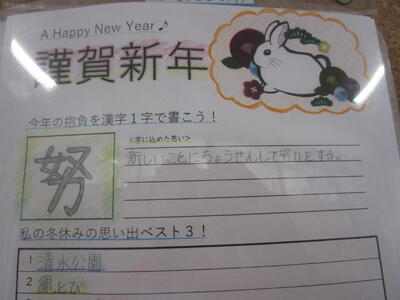 A Happy New Year♪
謹賀新年
今年の抱負を漢字1字で書こう！
<字に込めた思い>
努
新しいことにちょうせんして努力する。
私の冬休みの思い出ベスト3！
1 清水公園
2 凧とび